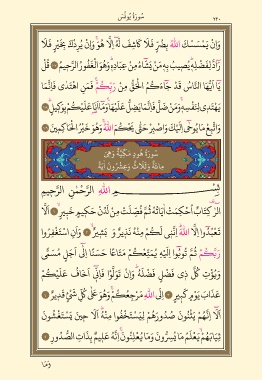 سُورَةُ يُونُسَ ٢٢٠
وَاِنْ يَمْسَسْكَ اللّٰهُ بِضُرٍّ فَلَا كَاشِفَ لَهُٓ اِلَّا هُوَۚ وَاِنْ يُرِدْكَ بِخَيْرٍ فَلَا
رَٓادَّ لِفَضْلِهٖۜ يُصٖيبُ بِهٖ مَنْ يَشَٓاءُ مِنْ عِبَادِهٖۜ وَهُوَ الْغَفُورُ الرَّحٖيمُ ۝ قُلْ
يَٓا اَيُّهَا النَّاسُ قَدْ جَٓاءَكُمُ الْحَقُّ مِنْ رَبِّكُمْۚ فَمَنِ اهْتَدٰى فَاِنَّمَا
يَهْتَدٖى لِنَفْسِهٖۚ وَمَنْ ضَلَّ فَاِنَّمَا يَضِلُّ عَلَيْهَاۚ وَمَٓا اَنَا۬ عَلَيْكُمْ بِوَكٖيلٍۜ ۝
وَاتَّبِعْ مَا يُوحٰٓى اِلَيْكَ وَاصْبِرْ حَتّٰى يَحْكُمَ اللّٰهُۚ وَهُوَ خَيْرُ الْحَاكِمٖينَ ۝
سُورَةُ هُودٍ مَكِّيَّةٌ وَهِيَ
مِائَةٌ وَثَلَاثٌ وَعِشْرُونَ اٰيَةً
بِسْمِ اللّٰهِ الرَّحْمٰنِ الرَّحٖيمِ
الٓرٰ۠ كِتَابٌ اُحْكِمَتْ اٰيَاتُهُ ثُمَّ فُصِّلَتْ مِنْ لَدُنْ حَكٖيمٍ خَبٖيرٍۙ ۝ اَلَّا
تَعْبُدُٓوا اِلَّا اللّٰهَۜ اِنَّنٖى لَكُمْ مِنْهُ نَذٖيرٌ وَبَشٖيرٌۙ ۝ وَاَنِ اسْتَغْفِرُوا
رَبَّكُمْ ثُمَّ تُوبُٓوا اِلَيْهِ يُمَتِّعْكُمْ مَتَاعًا حَسَنًا اِلٰٓى اَجَلٍ مُسَمًّى
وَيُؤْتِ كُلَّ ذٖى فَضْلٍ فَضْلَهُۜ وَاِنْ تَوَلَّوْا فَاِنّٖٓى اَخَافُ عَلَيْكُمْ
عَذَابَ يَوْمٍ كَبٖيرٍ ۝ اِلَى اللّٰهِ مَرْجِعُكُمْۚ وَهُوَ عَلٰى كُلِّ شَیْءٍ قَدٖيرٌ ۝
اَلَٓا اِنَّهُمْ يَثْنُونَ صُدُورَهُمْ لِيَسْتَخْفُوا مِنْهُۜ اَلَا حٖينَ يَسْتَغْشُونَ
ثِيَابَهُمْۙ يَعْلَمُ مَا يُسِرُّونَ وَمَا يُعْلِنُونَۚ اِنَّهُ عَلٖيمٌ بِذَاتِ الصُّدُورِ ۝
وَمَا